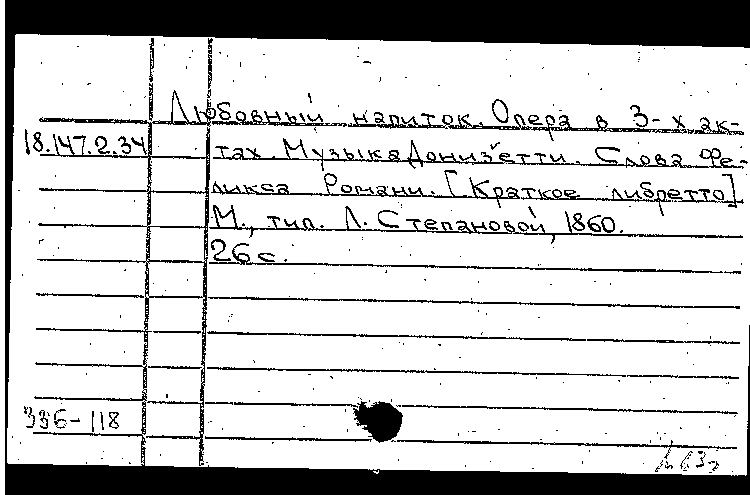 Любовный напиток. Опера в 3-х ак-
18.147.2.34 тах. Музыка Донизетти. Слова Фе-
ликса Романи. [Краткое либретто]
М., тип. Л. Степановой, 1860.
26 с.
336-118